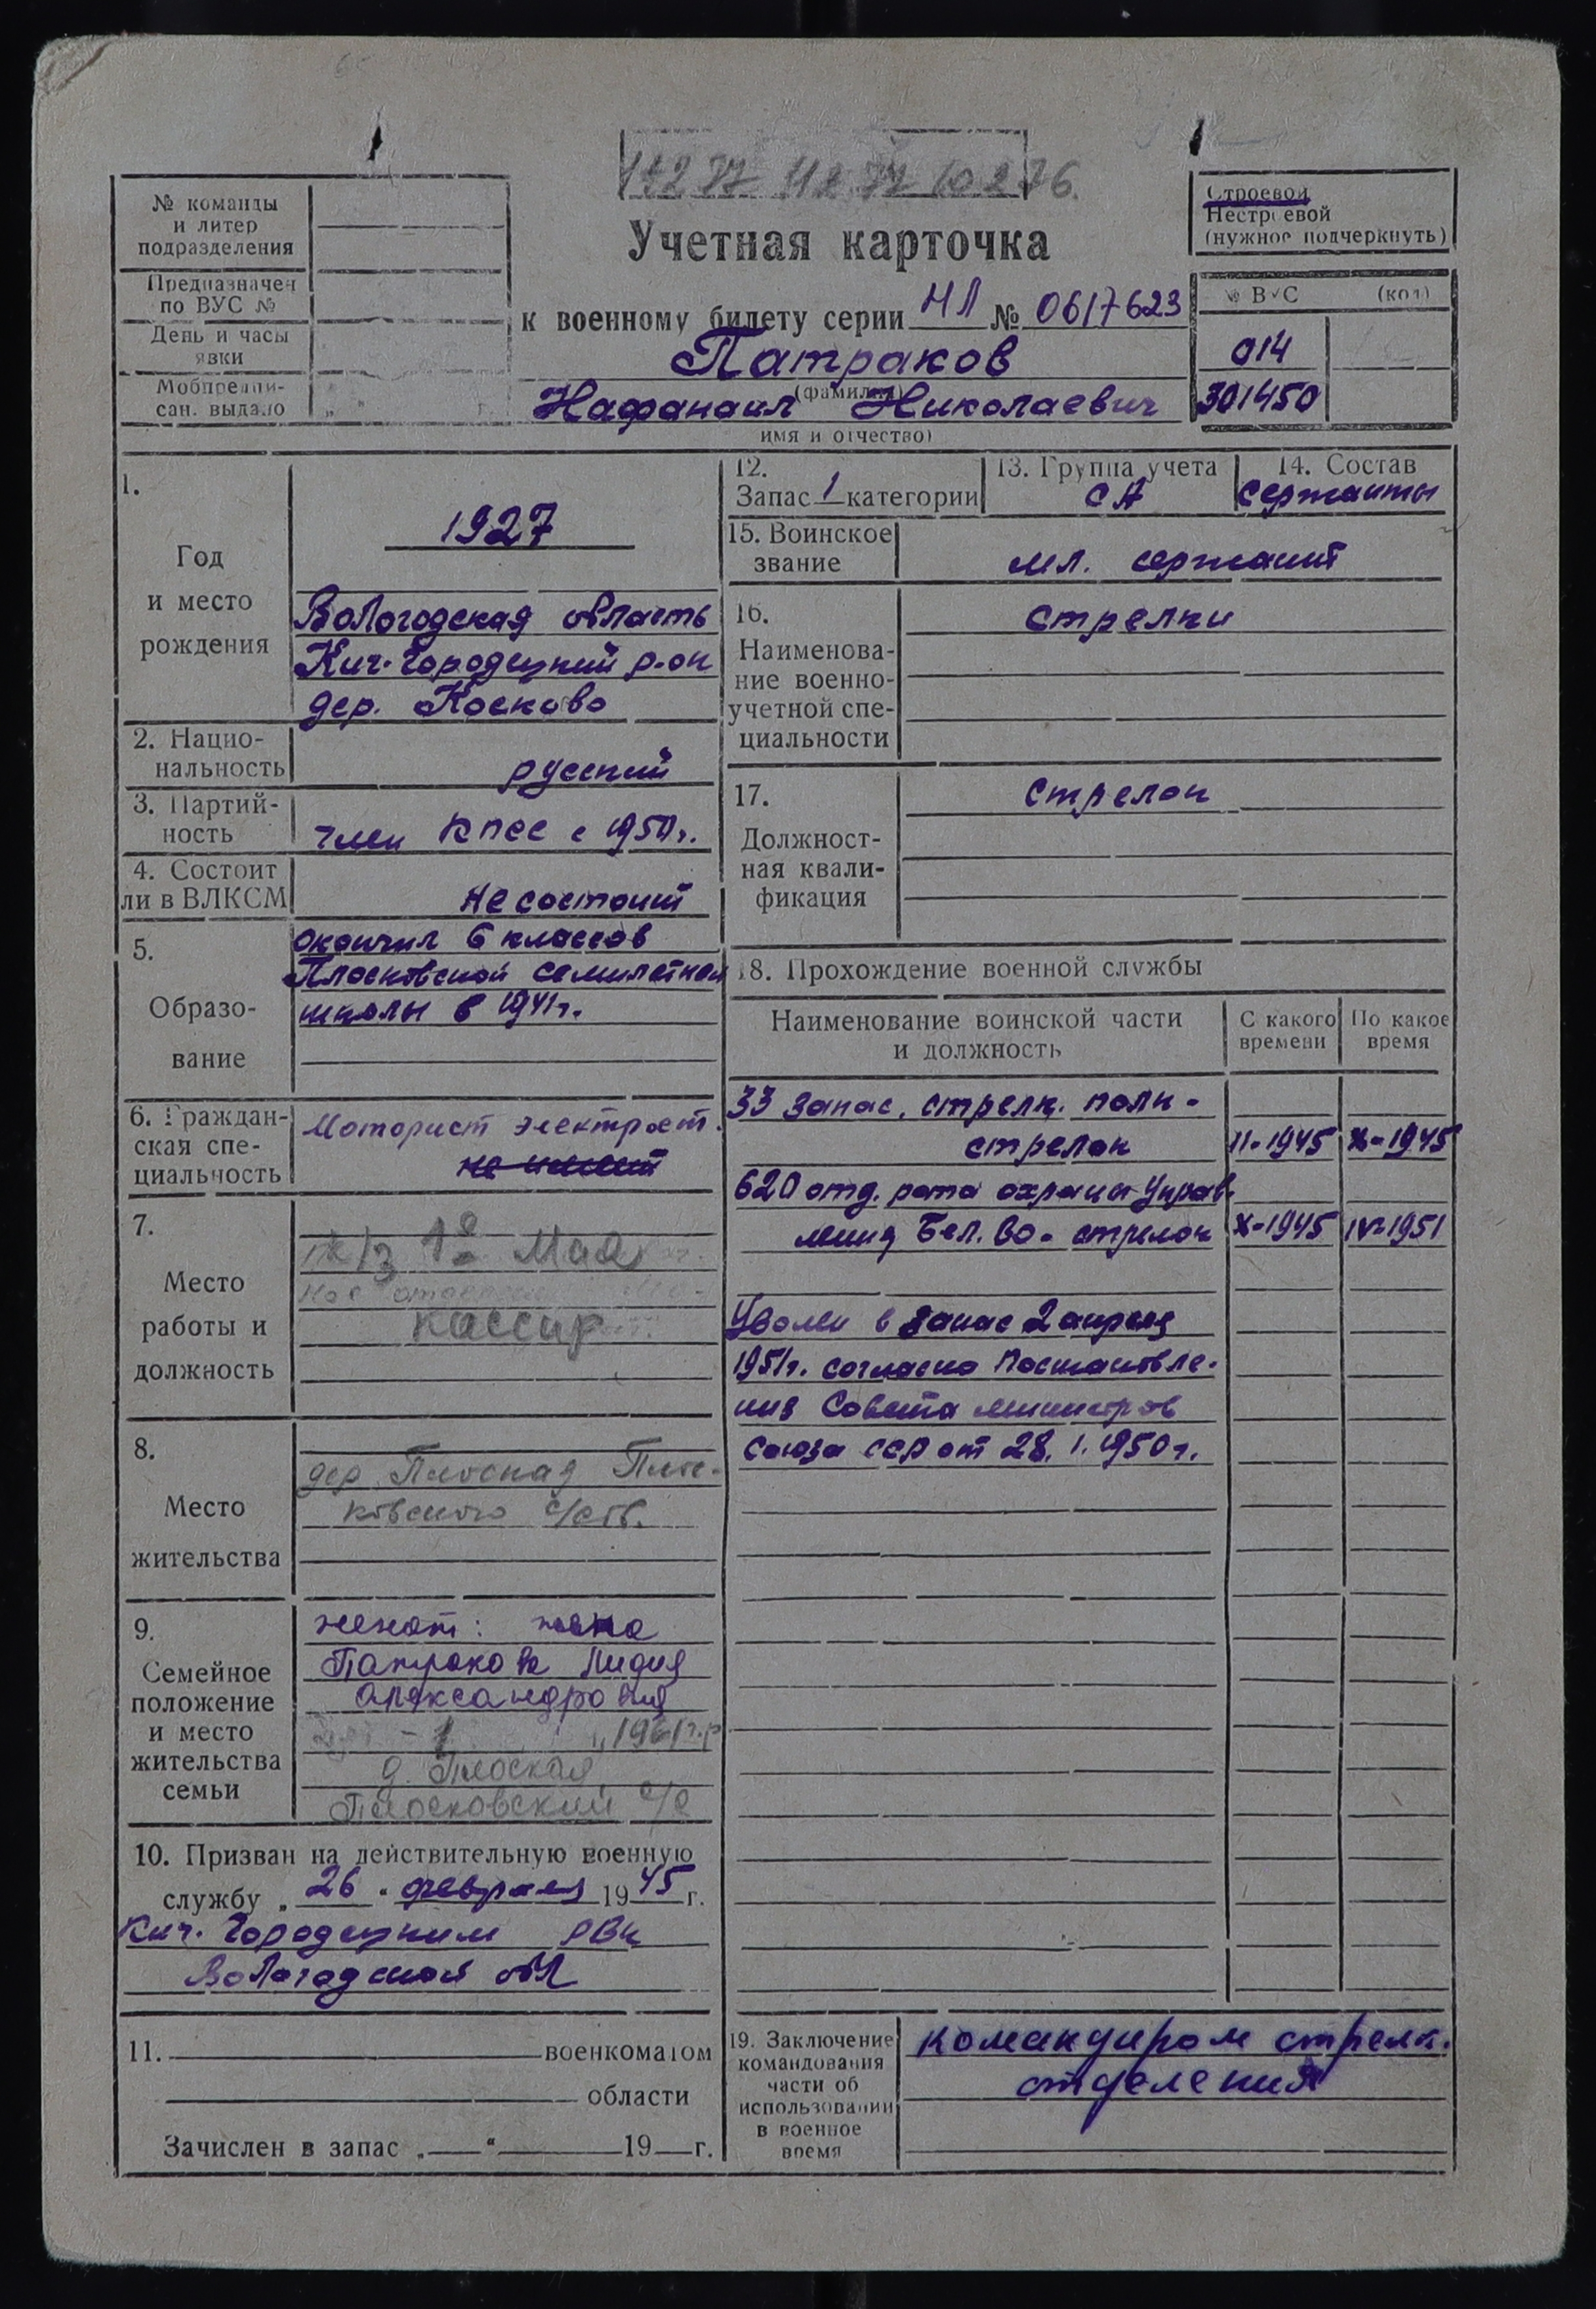 № команды
и литер
подразделения
Предназначен
по ВУС №
День и часы
явки
Мобпредпи-
сан. выдано „ “ г.
Учетная карточка
к военному билету серии НЛ № 0617623
Патраков
(фамилия)
Нафанаил Николаевич
имя и отчество)
Строевой
Нестроевой
(нужное подчеркнуть)
№ ВУС (код)
014
301450
1.
Год
и место
рождения
1927
Вологодская область
Кич. Городецкий р-он
дер. Косково
2. Нацио-
нальность
русский
3. Партий-
ность
член КПСС с 1950 г.
4. Состоит
ли в ВЛКСМ
не состоит
5.
Образо-
вание
окончил 6 классов
Плосковской семилетней
школы в 1941 г.
6. Граждан-
ская спе-
циальность
Моторист электрост.
не имеет
7.
Место
работы и
должность
к/з 1е Мая
кассир
8.
Место
жительства
дер. Плоская Плос-
ковского с/сов.
9.
Семейное
положение
и место
жительства
семьи
женат: жена
Патракова Лидия
Александровна
1961 г.р
д. Плоская
Плосковский с/с
10. Призван на действительную военную
службу „ 26 “ февраля 1945 г.
Кич. Городецким РВК
Вологодской обл
11. военкоматом
области
Зачислен в запас „ “ 19 г.
12.
Запас 1 категории
13. Группа учета
СА
14. Состав
сержанты
15. Воинское
звание
мл. сержант
16.
Наименова-
ние военно-
учетной спе-
циальности
стрелки
17.
Должност-
ная квали-
фикация
стрелок
18. Прохождение военной службы
Наименование воинской части
и должность
С какого
времени
По какое
время
33 запас. стрелк. полк -
стрелок II-1945 X-1945
620 отд. рота охраны Управ-
ления Бел. ВО - стрелок X-1945 IV-1951
Уволен в запас 2 апреля
1951 г. согласно Постановле-
ния Совета министров
Союза ССР от 28.1.1950 г.
19. Заключение
командования
части об
использовании
в военное
время
командиром стрелк.
отделения